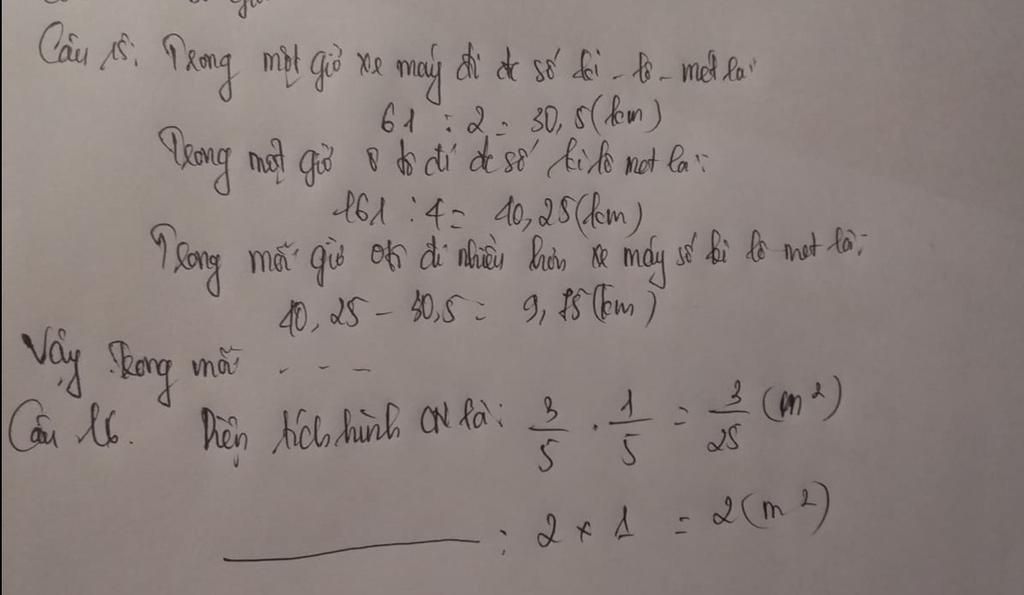 Câu 15: Trong một giờ xe máy đi đc số ki-lô-mét là:
61 : 2 = 30,5 (km)
Trong một giờ ô tô đi đc số ki lô met là:
161 : 4 = 40,25 (km)
Trong mỗi giờ ôtô đi nhiều hơn xe máy số ki lô met là:
40,25 - 30,5 = 9,75 (km)
Vậy trong mỗi ...
Câu 16. Diện tích hình CN là: 3/5 . 1/5 = 3/25 (m²)
: 2 x 1 = 2 (m²)